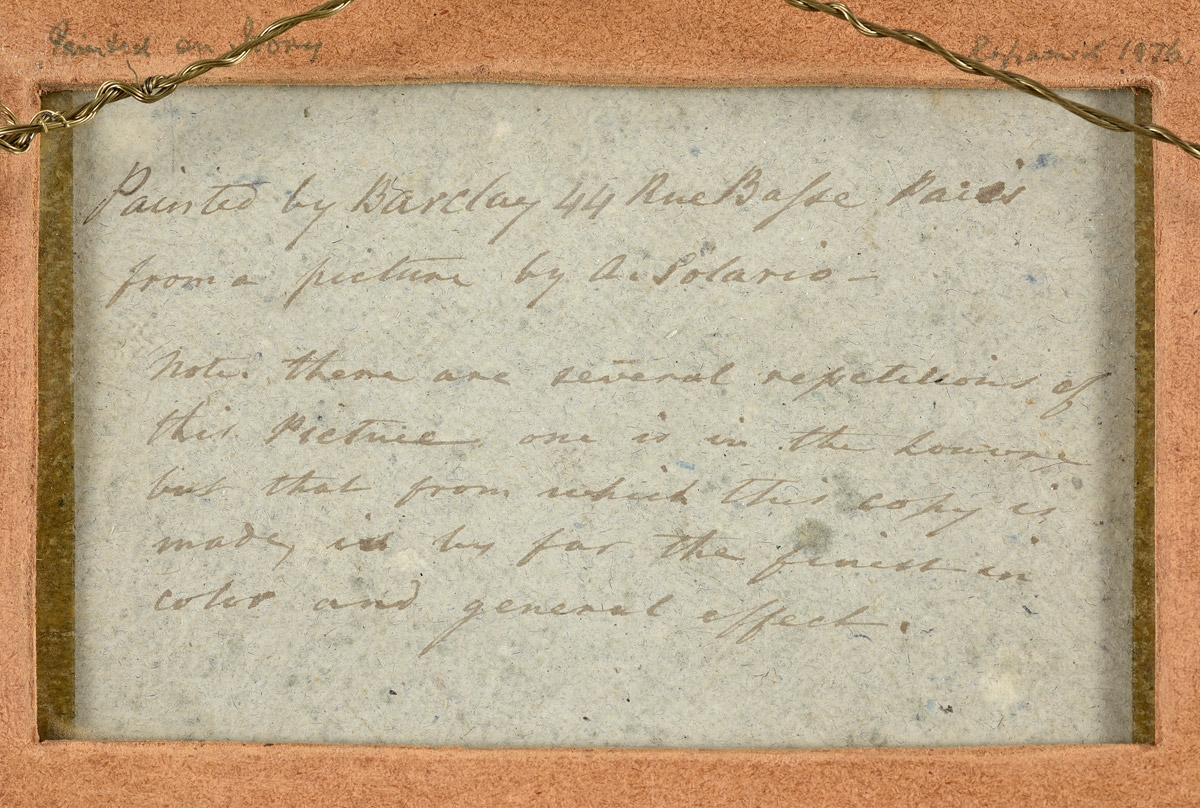 Painted on Ivory
1976.
Painted by Barclay 44 Rue Basse Paris
from a picture by A. Solario –
Note. there are several repetitions of
this Picture one is in the Louvre
but that from which this copy is
made, is by far the finest in
color and general effect.